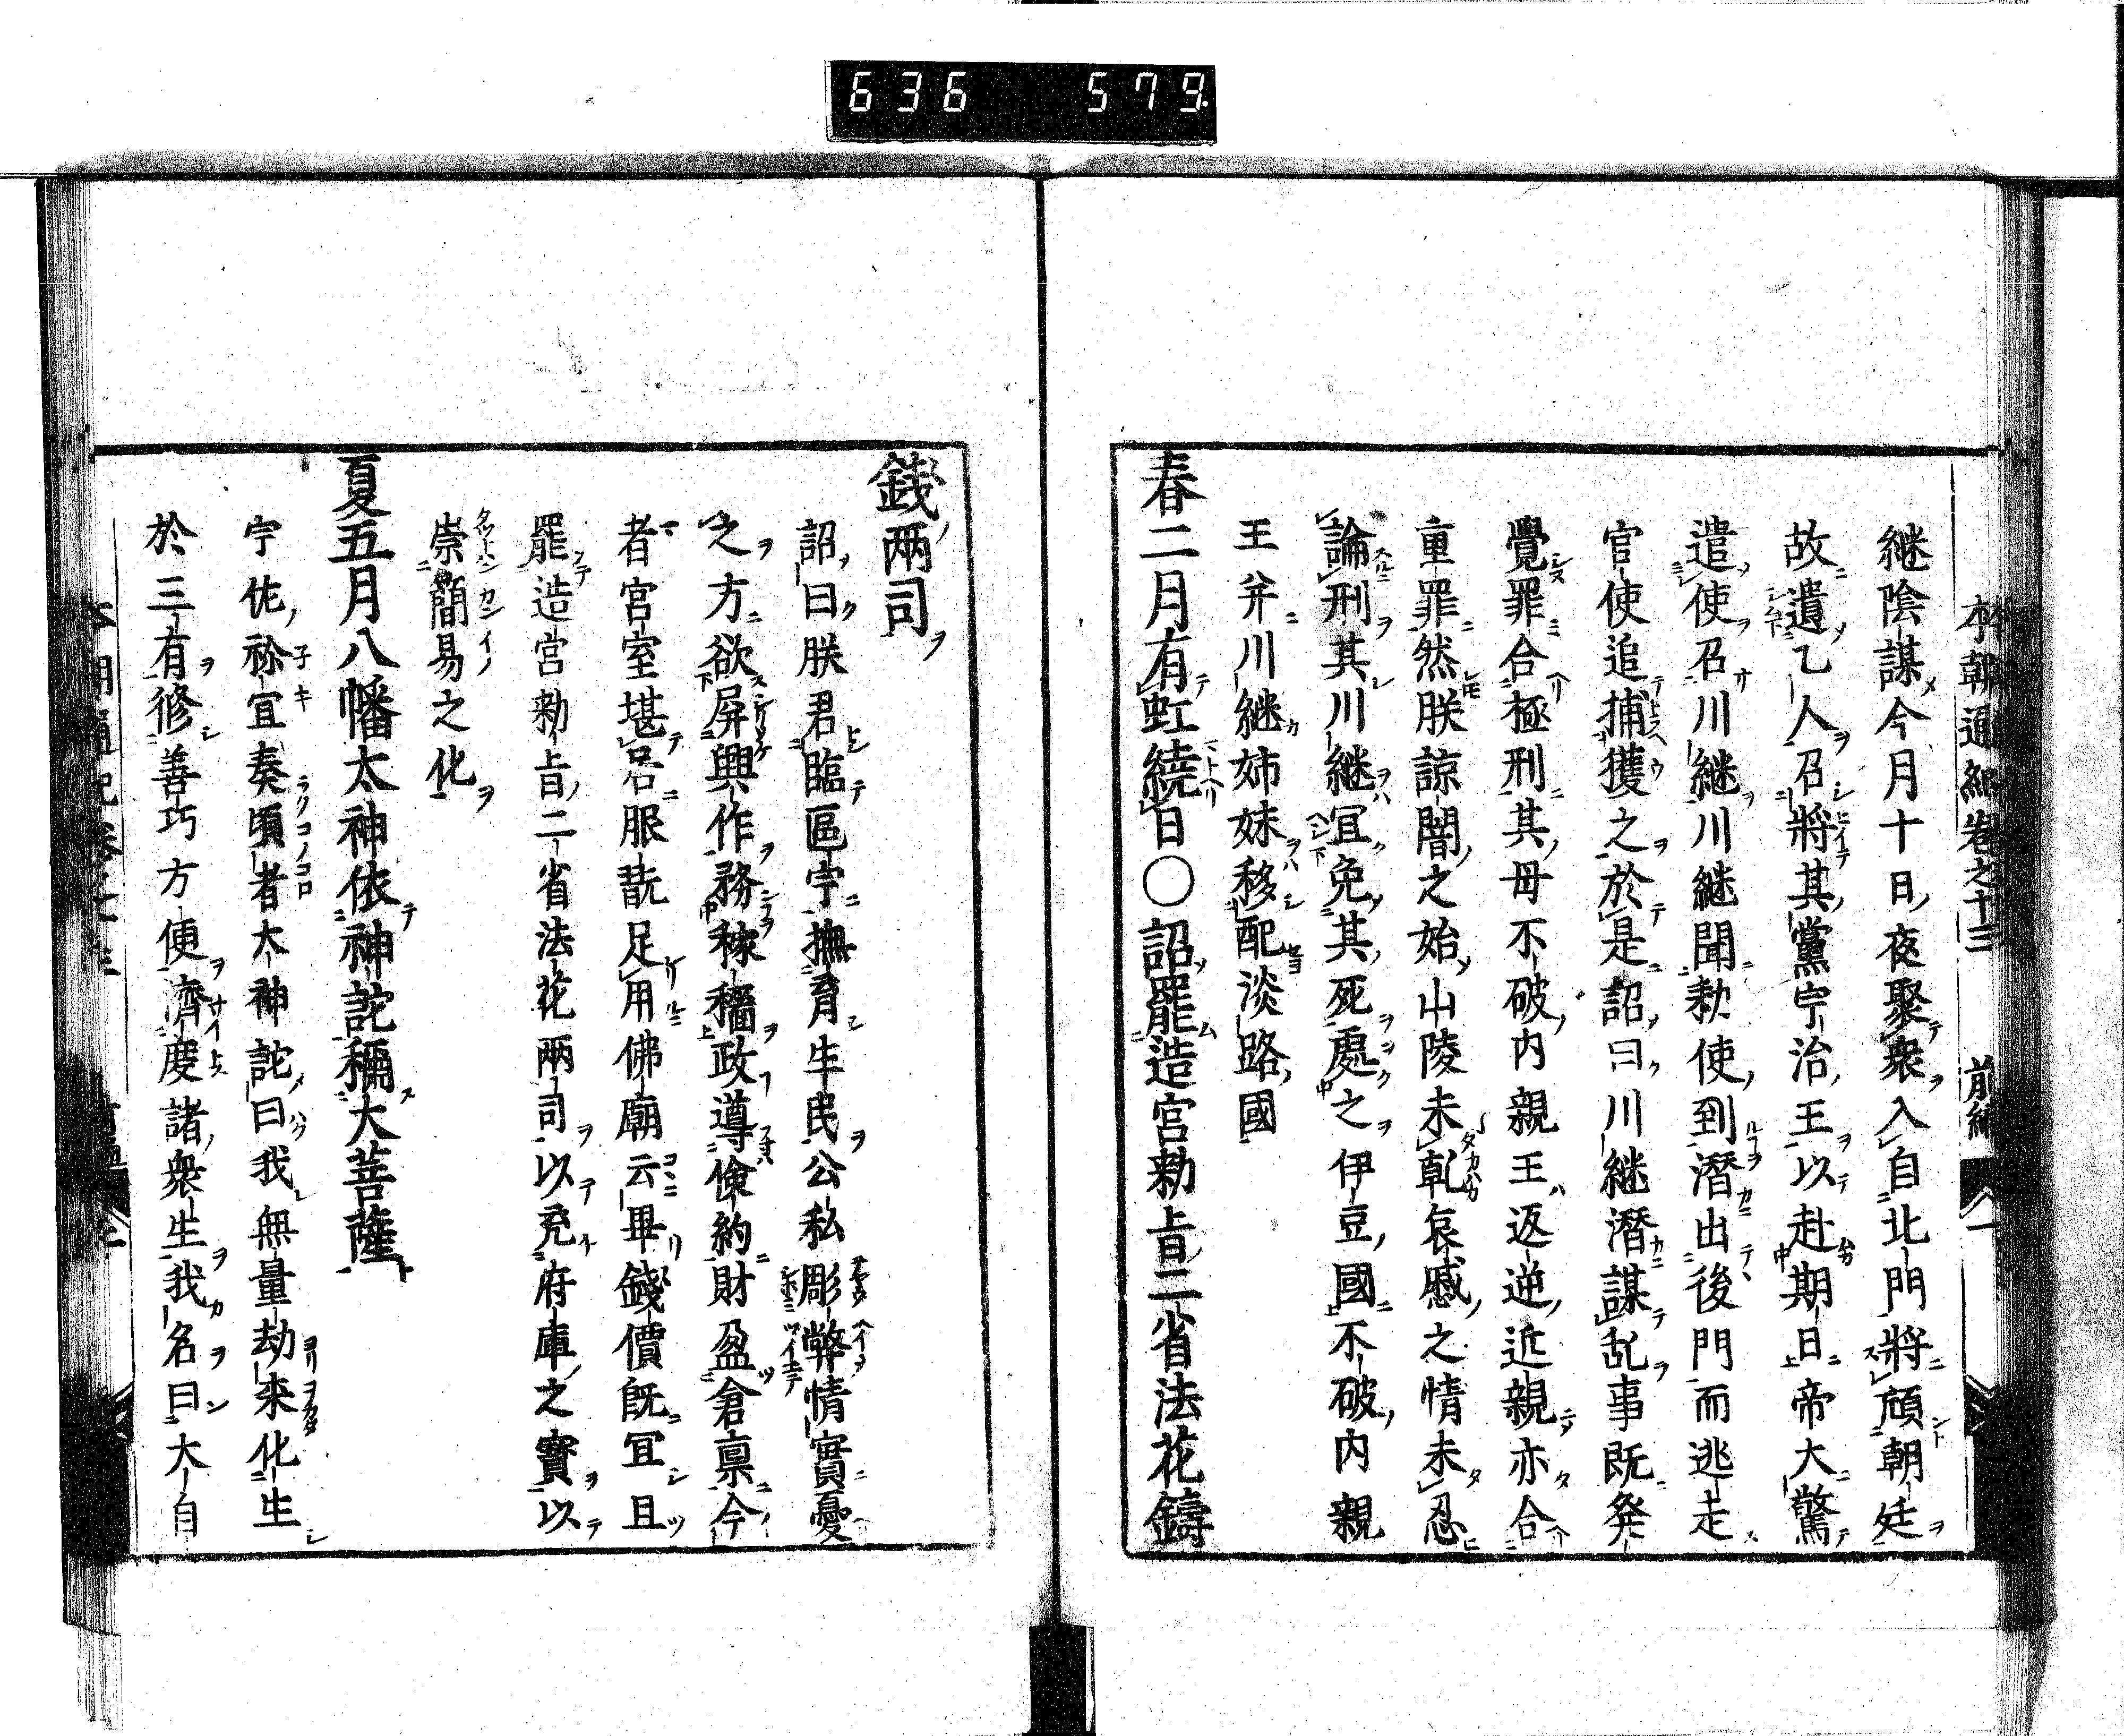 636 579.
本朝通紀巻之十三 前編 一
継陰謀今月十日夜聚衆入自北門將頎朝廷
故遺乙人召將其黨宇治王以赴期日帝大驚
遣使召川継川継聞勅使到潛出後門而逃走
官使追捕獲之於是詔曰川継潛謀乱事既発
覺罪合極刑其母不破内親王返逆近親亦合
重罪然朕諒闇之始山陵未乹哀慼之情未忍
論刑其川継冝免其死處之伊豆國不破内親
王并川継姉妹移配淡路國
春二月有虹繞日〇詔罷造宮勅旨二省法花鑄
錢兩司
詔曰朕君臨區宇撫育生民公私彫弊情實憂
之方欲屏興作務稼穡政導儉約財盈倉禀今
者宮室堪居服翫足用佛廟云畢錢價既冝且
罷造宮勅旨二省法花兩司以充府庫之寶以
崇簡易之化
夏五月八幡太神依神託稱大菩薩
宇佐祢宜奏頃者大神託曰我無量劫來化生
於三有修善巧方便濟度諸衆生我名曰大自